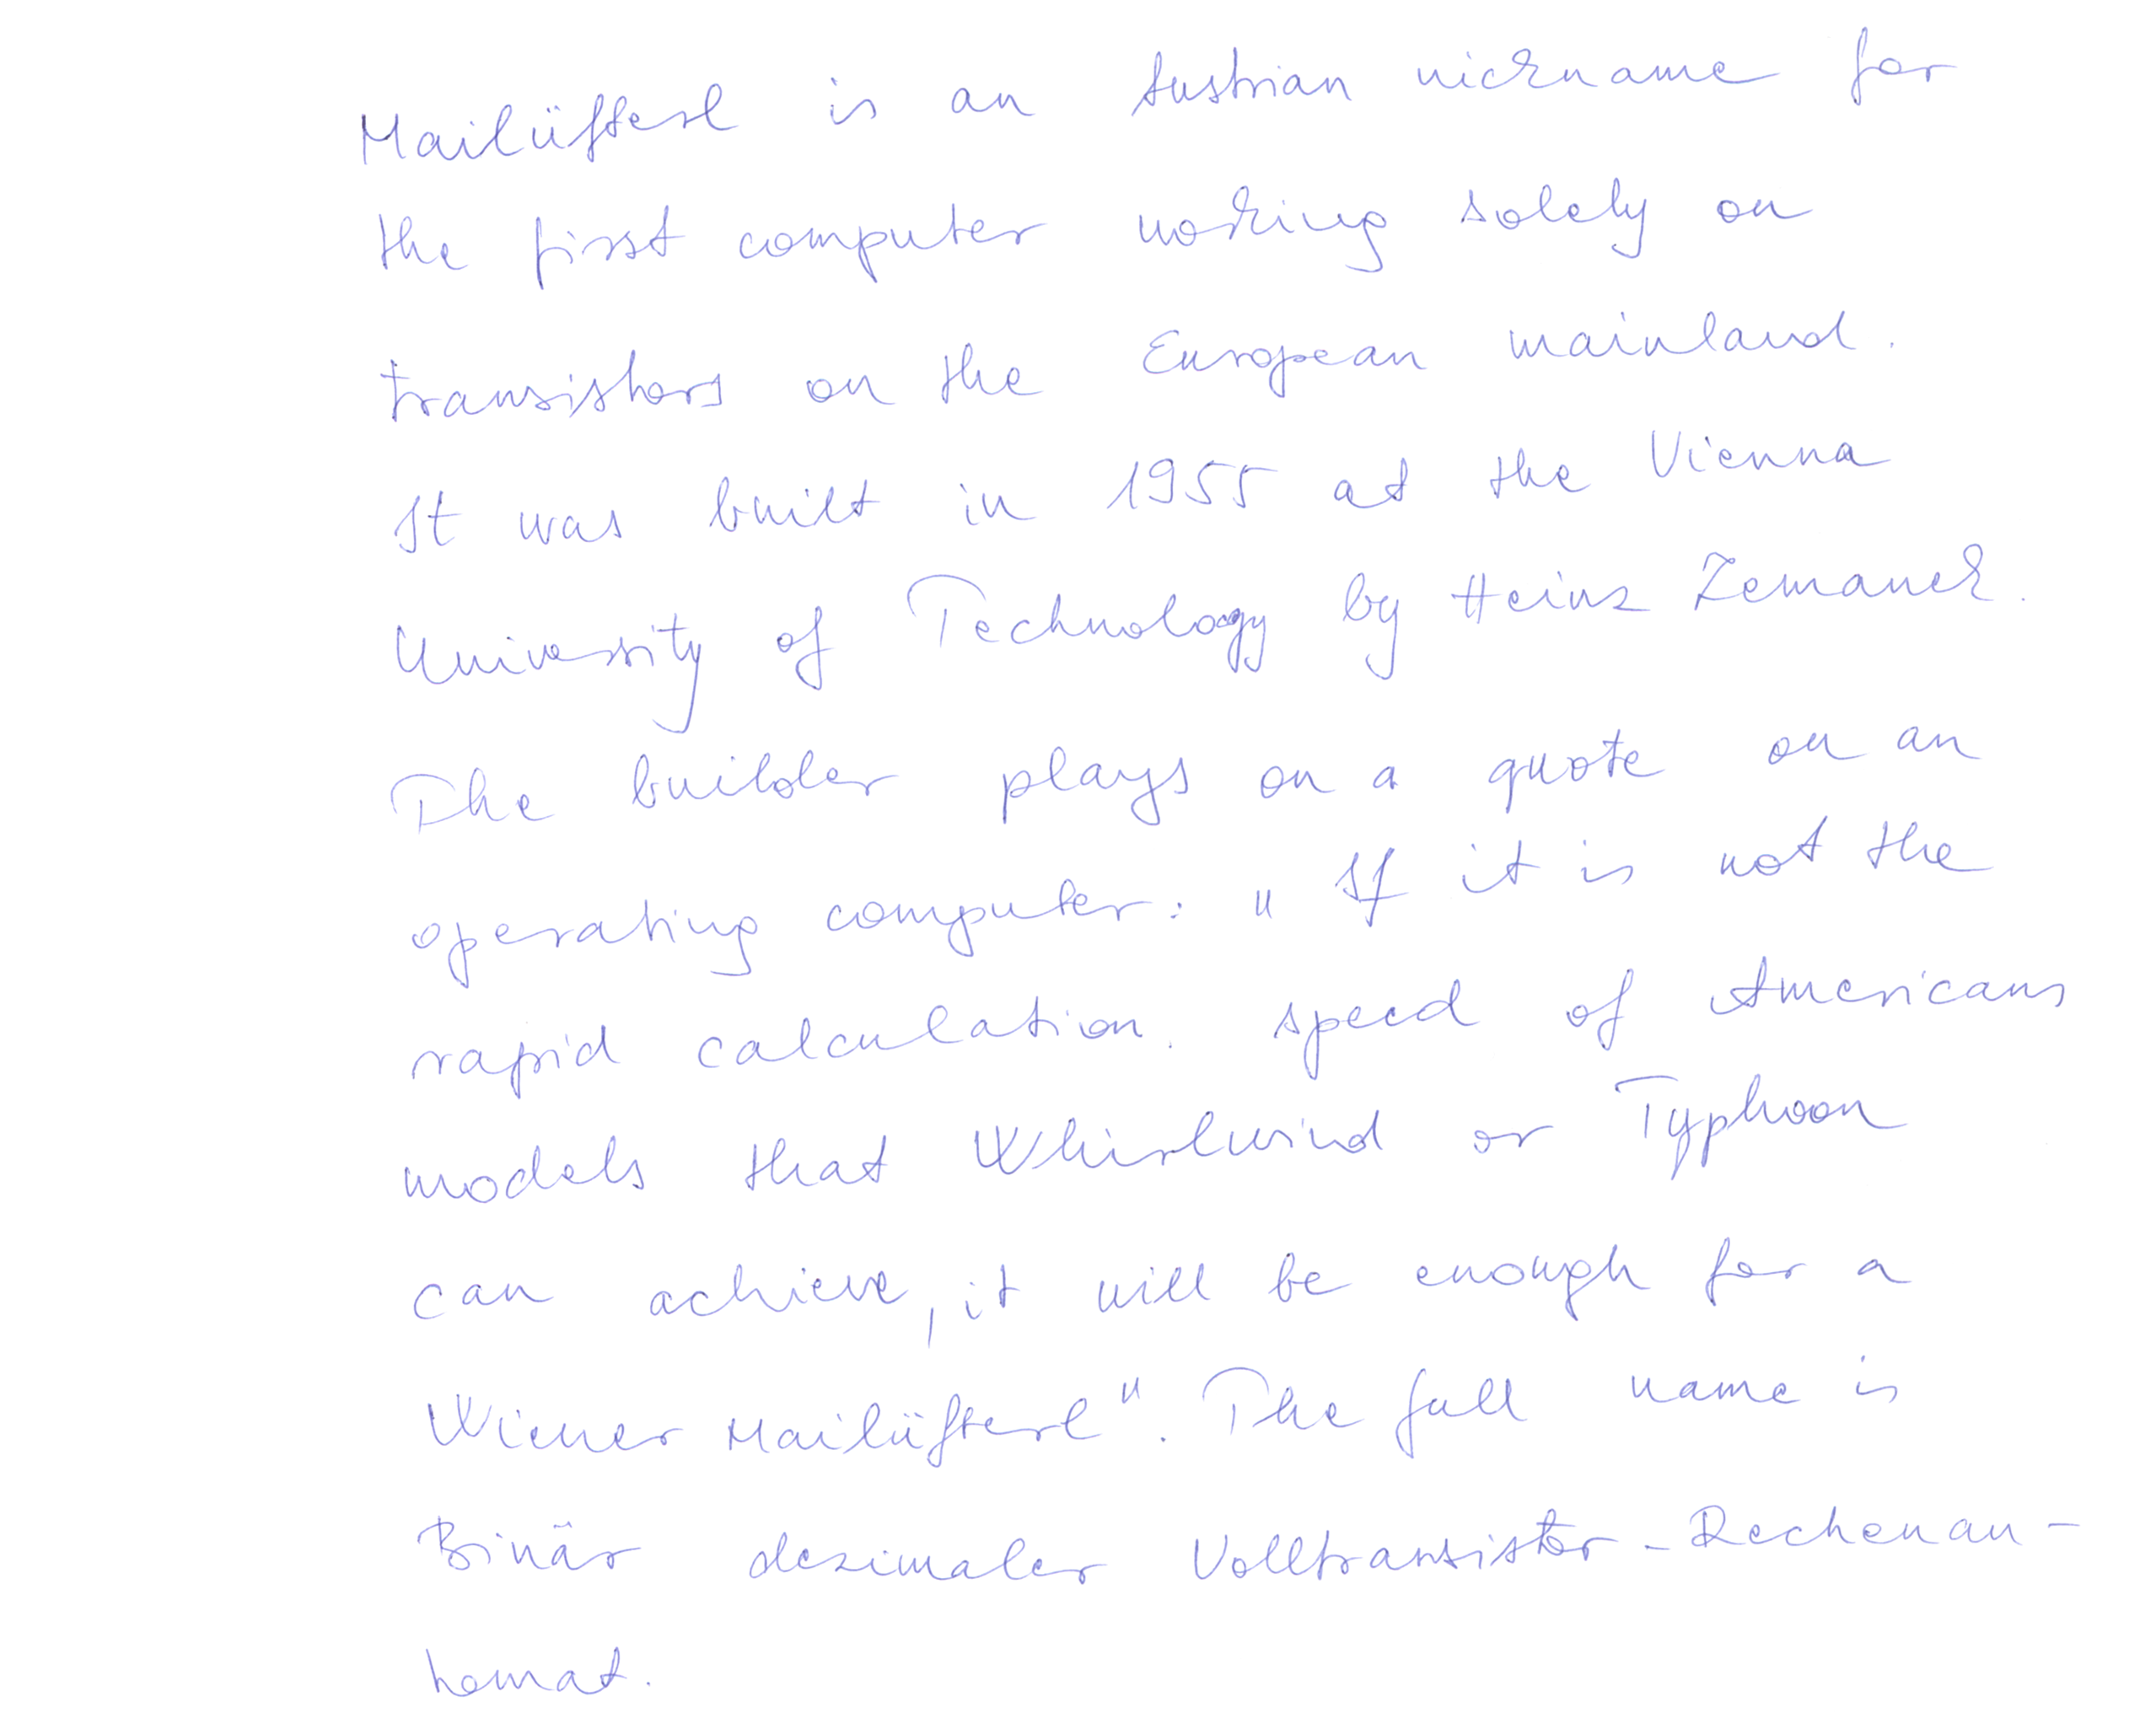 Mailüfterl is an Austrian nickname for
the first computer working solely on
transistors on the European mainland.
It was built in 1955 at the Vienna
University of Technology by Heinz Zemanek.
The builder plays on a quote on an
operating computer: "If it is not the
rapid calculation. speed of Americans
models that Whirlwind or Typhoon
can achieve, it will be enough for a
Wiener Mailüfterl". The full name is
Binär dezimaler Volltransistor-Rechenau-
tomat.